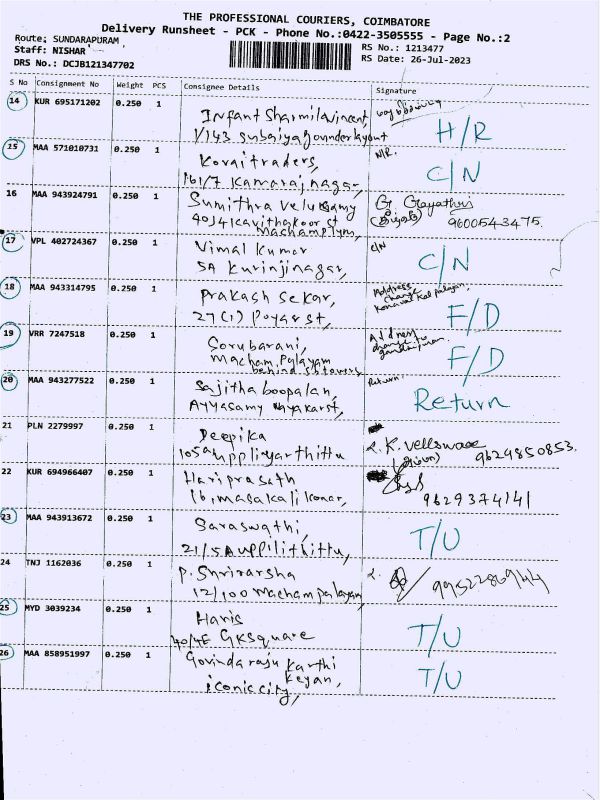 THE PROFESSIONAL COURIERS, COIMBATORE
Delivery Runsheet - PCK - Phone No.:0422-3505555 - Page No.:2
Route: SUNDARAPURAM
Staff: NISHAR
RS No.: 1213477
DRS No.: DCJB121347702
RS Date: 26-Jul-2023
S No Consignment No Weight PCS Consignee Details Signature
14 KUR 695171202 0.250 1
Infant Sharmila Vincent, H/R
1/143 Subaiya Gounder layout
15 MAA 571010731 0.250 1 N/R.
Kovai traders, C/N
161/7 Kamaraj nagar,
16 MAA 943924791 0.250 1 Sumithra Velusamy G. Gayathri
40J4 Kavitha koor st 9600543475.
Machamplym,
17 VPL 402724367 0.250 1 C/N
Vimal Kumar C/N
5A Kurinjinagar,
18 MAA 943314795 0.250 1 Address change
Prakash Sekar, F/D
27(1) Poyar st,
19 VRR 7247518 0.250 1 Address change to
Sorubarani, F/D
Macham Palayam
behind
20 MAA 943277522 0.250 1 Return
Sajitha boopalan, Return
Ayyasamy Nayakar st,
21 PLN 2279997 0.250 1
Deepika
105a 9629850853.
22 KUR 694966407 0.250 1
Hariprasath
16, masakali konar, 9629374141
23 MAA 943913672 0.250 1
Saraswathi, T/U
21/5A uppilithittu,
24 TNJ 1162036 0.250 1
P. Shrirarsha
12/100 Machampalayam,
25 MYD 3039234 0.250 1
Haris T/U
40/4E GK Square
26 MAA 858951997 0.250 1 Govindaraju Karthi T/U
Keyan,
iconic city,